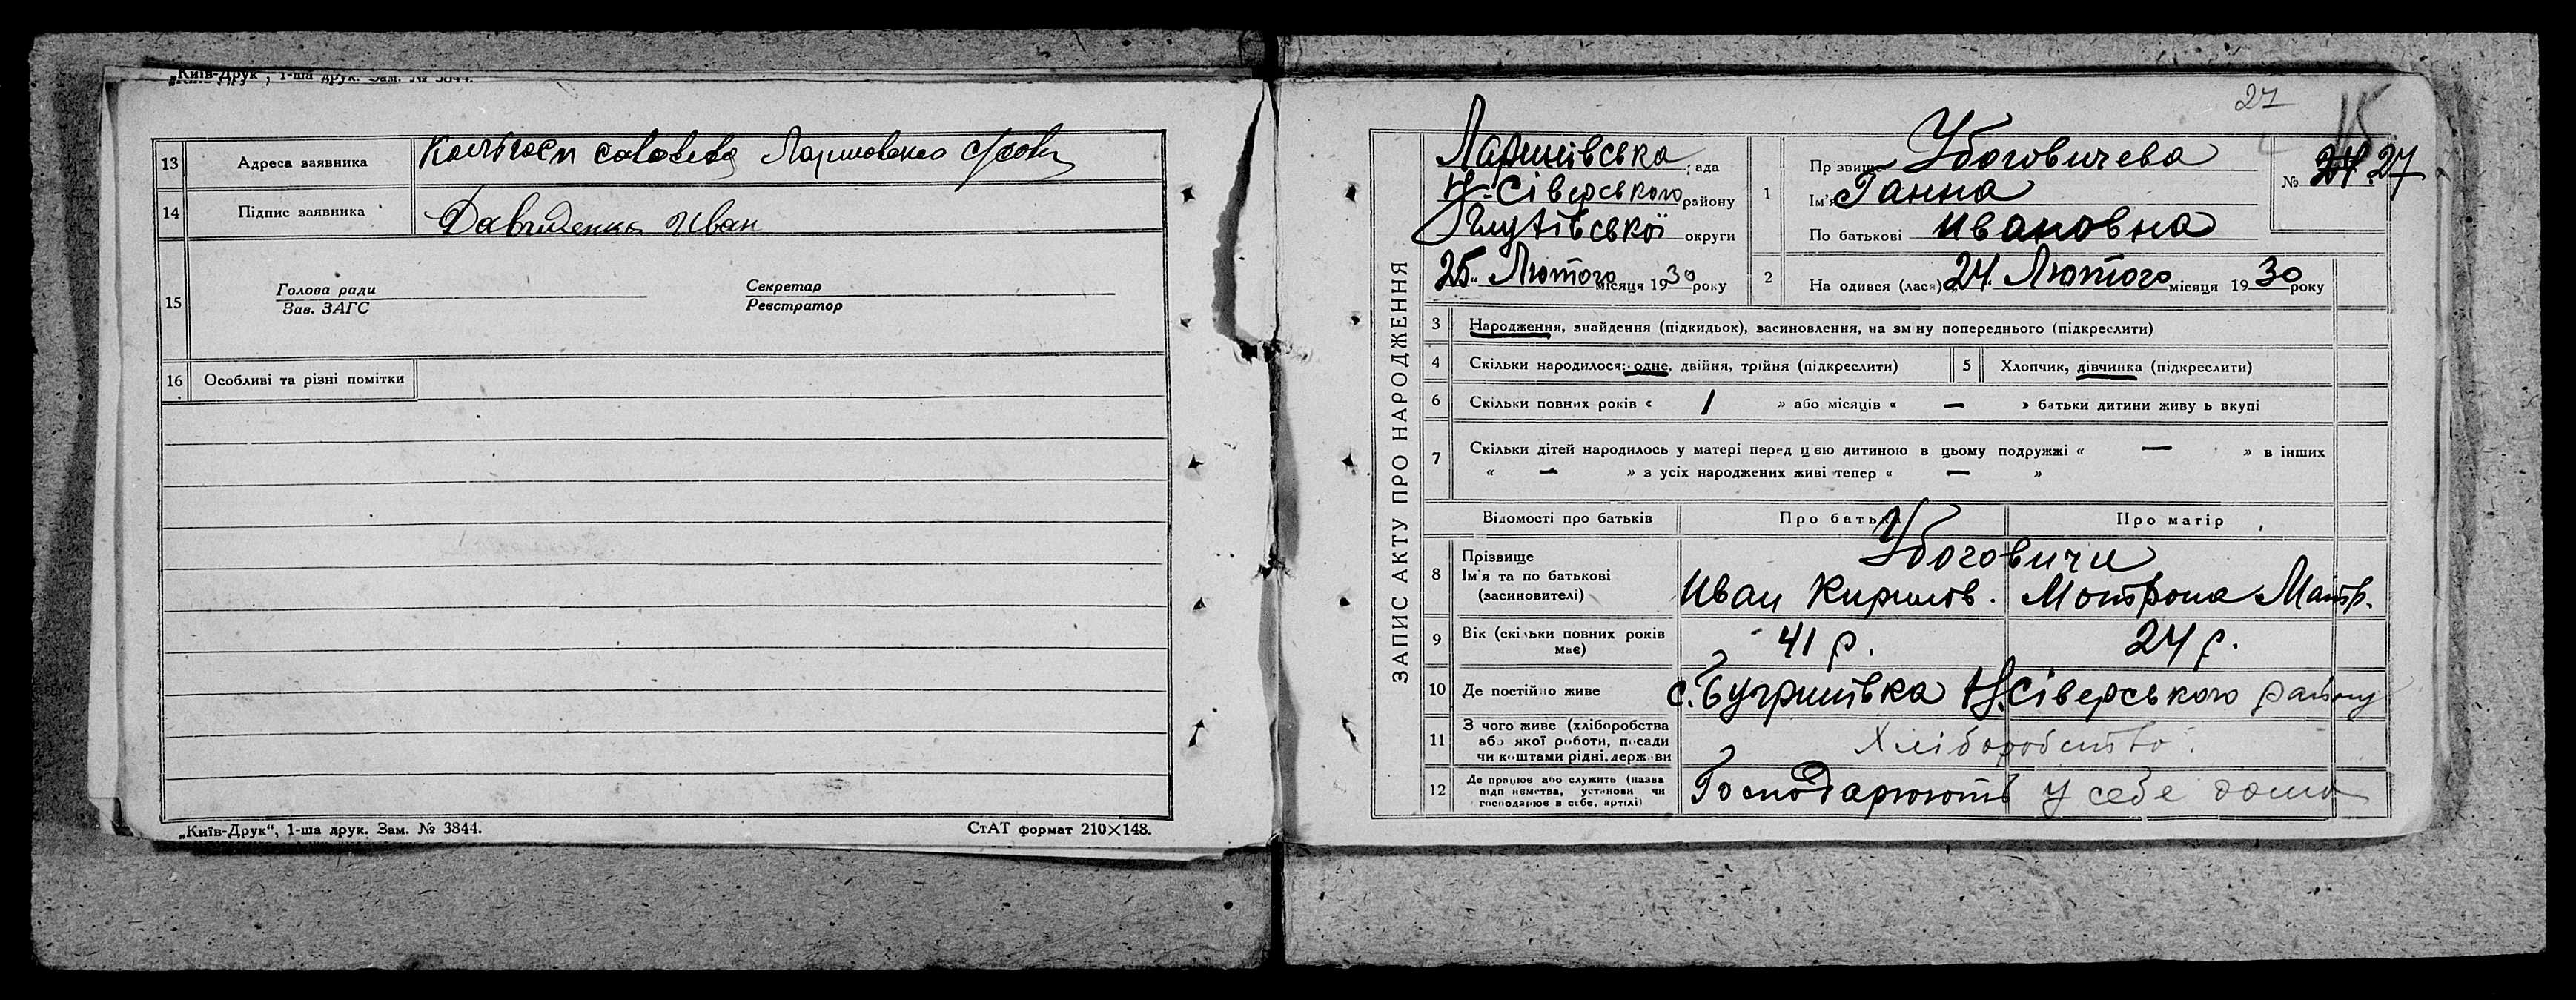 „Київ-Друк", 1-ша друк. Зам. № 3844.
13 Адреса заявника
14 Підпис заявника Давиденко Иван
15 Голова ради Секретар
Зав. ЗАГС Реєстратор
16 Особливі та різні помітки
„Київ-Друк“, 1-ша друк. Зам. № 3844. СтАТ формат 210×148.
27
ЗАПИС АКТУ ПРО НАРОДЖЕННЯ
Ларинівська рада
Н-Сіверського району
Глухівської округи
25 Лютого місяця 1930 року
1 Прізвище Убоговичева
Ім'я Ганна
По батькові Ивановна
№ 27
2 Народився (лася) „24" Лютого місяця 1930 року
3 Народження, знайдення (підкидьок), засиновлення, на зміну попереднього (підкреслити)
4 Скільки народилося: одне, двійня, трійня (підкреслити) 5 Хлопчик, дівчинка (підкреслити)
6 Скільки повних років « 1 » або місяців « — » батьки дитини живуть вкупі
7 Скільки дітей народилось у матері перед цією дитиною в цьому подружжі « — » в інших
« — » з усіх народжених живі тепер « — »
Відомості про батьків Про батька Про матір
8 Прізвище Убоговичи
Ім'я та по батькові (засиновителі) Иван Кирилов. Мотрона Митр.
9 Вік (скільки повних років має) 41 р. 24 р.
10 Де постійно живе с. Бугринівка Н.Сіверського району
11 З чого живе (хліборобства або якої роботи, посади чи коштами рідні, держави Хліборобство.
12 Де працює або служить (назва підприємства, установи чи господарює в себе, артілі) Господарюють у себе дома